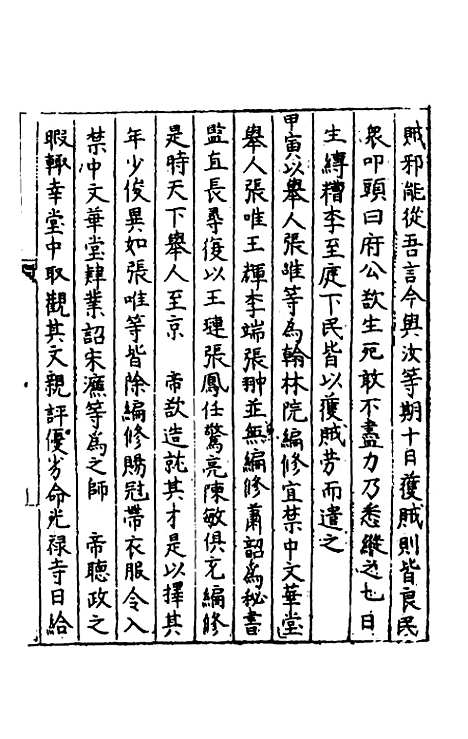 賊邪能從吾言今與汝等期十日獲賊則皆良民
衆叩頭曰府公欲生死敢不盡力乃悉縱之七日
生縛糟李至庭下民皆以獲賊勞而遣之
甲寅以舉人張唯等為翰林院編修宜禁中文華堂
舉人張唯王輝李端張翀並無編修蕭韶為秘書
監直長尋復以王璉張鳳任驚亮陳敏俱充編修
是時天下舉人至京　帝欲造就其才是以擇其
年少俊異如張唯等皆除編修賜冠帶衣服令入
禁中文華堂肄業詔宋濂等為之師　帝聽政之
暇輒幸堂中取觀其文親評優劣命光禄寺日給